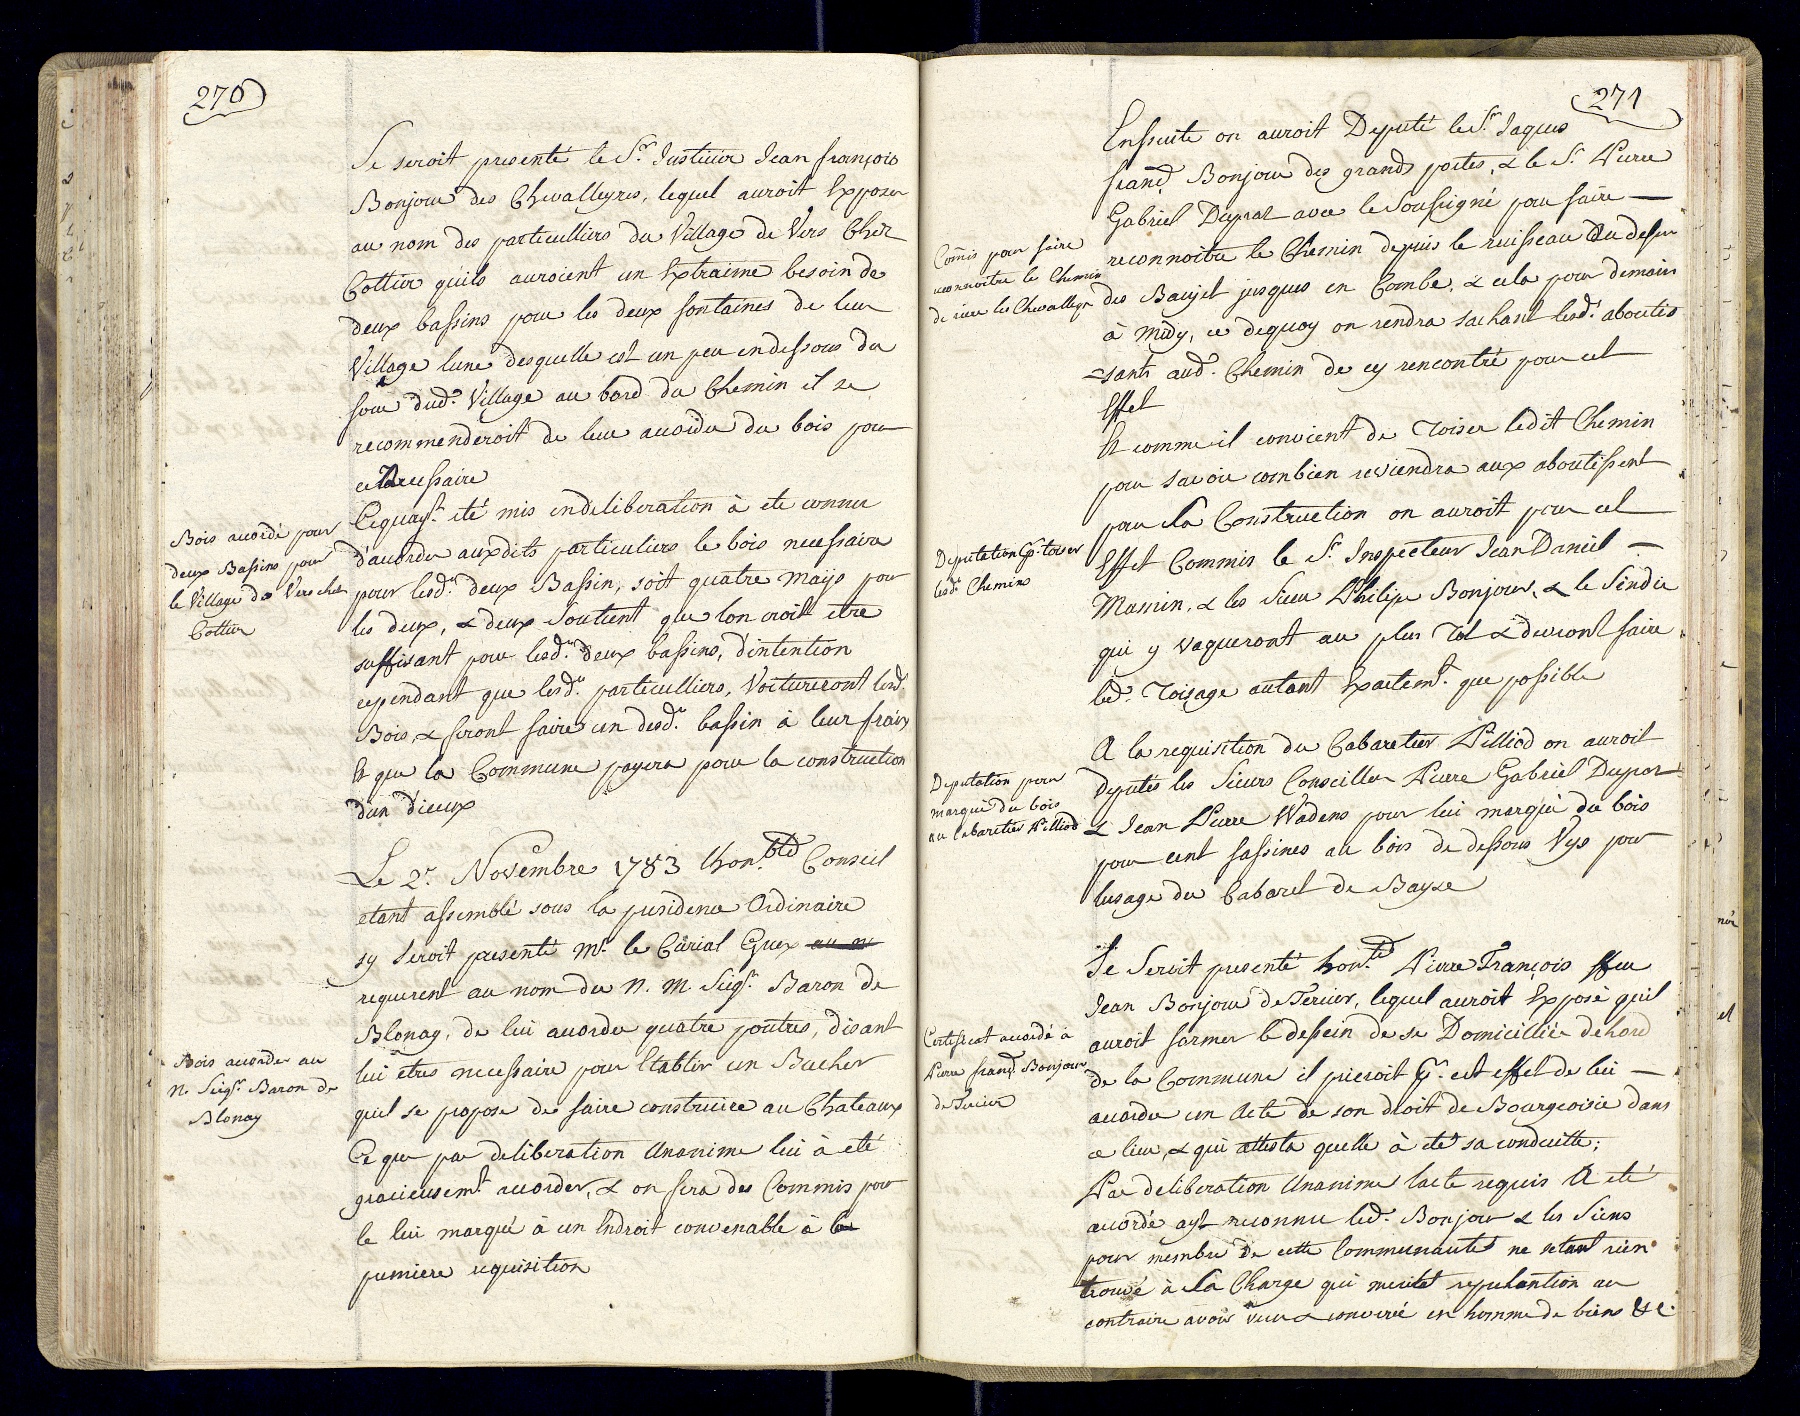 270
Se seroit presenté le Sr. Justicier Jean françois
Bonjour des Chevalleyres, lequel auroit Exposer
au nom des particulliers du Village de Vers Chéz
Cottier quils auroient un Extraime besoin de
deux bassins pour les deux fontaines de leur
Village lune desquelle est un peu endessous du
four dudt. Village au bord du Chemin il se
recommenderoit de leur accorder du bois pour
ce Necessaire
Bois accordé pour
deux Bassins pour
le Village de Vers chez
Cottier
Cequayt. eté mis endeliberation à ete connu
d'accorder auxdits particuliers le bois necessaire
pour lesdts. deux Bassin, soit quatre mays pour
les deux, & deux Soutient que lon croit etre
suffisant pour lesdts. deux bassins, d'intention
cependant que lesdts. particulliers, Voitureront lesdts.
Bois, & feront faire un desdts. bassin à leur fraix
Et que la Commune payera pour la construction
d'un d'iceux
Le 2e. Novembre 1783 lhon.ble Conseil
etant assemblé sous la presidence Ordinaire
sy seroit presenté Mr. le Curial Guex au n
requerent au nom du N. M. Seigr. Baron de
Blonay, de lui accorder quatre poutres, disant
lui etres necessaire pour Etablir un Bucher
quil se propose de faire construire au Chateaux
Bois accorder au
N. Seigr. Baron de
Blonay
Ce que par deliberation Unanime lui à eté
gracieusemt. accorder, & on fera des Commis pour
le lui marqué à un Endroit convenable à la
premiere requisition
271
Ensuite on auroit Deputé le Sr. Jaques
franç. Bonjour des grands portes, & le Sr. Pierre
Gabriel Dupraz avec le Soussigné pour faire
Comis pour faire
reconnoitre le Chemin
de rière les Chevalleyr
reconnoitre le Chemin depuis le ruisseau Du dessu
des Baujet jusques en Combe, & cela pour demain
à midy, ce dequoy on rendra sachant lesdts. aboutis
sants audt. Chemin de cy rencontré pour cet
Effet
Et comme il convient de Toiser ledit Chemin
pour savoir combien reviendra aux aboutissent
pour La Construction on auroit pour cet
Deputation pr. toiser
lesdts. Chemins
Effet Commis le Sr. Inspecteur Jean Daniel
Mamin, & les Sieur Philipe Bonjour, & le Sindic
qui y vaqueront au plus Tot & devront faire
ledt. Toisage autant Exactemt. que possible
Deputation pour
marqué du bois
au Cabaretier Pilliod
A la requisition du Cabaretier Pilliod on auroit
deputés les Sieurs Conseiller Pierre Gabriel Dupraz
& Jean Pierre Wadens pour lui marqué du bois
pour cent fassines au bois de dessous Vys pour
lusage du Cabaret de Bayse
Se Seroit presenté hon.te Pierre François ffeu
Jean Bonjour de Tercier, lequel auroit Exposé quil
Certificat accordé à
Pierre franç. Bonjour
de Tercier
auroit former le dessein de se Domicillié dehord
de la Commune il prieroit pr. cet effet de lui
accorder un Acte de son droit de Bourgeoisie dans
ce lieu, & qui attesta quelle à eté sa conduitte;
Par deliberation Unanime lacte requis A eté
accordé ayt reconnu ledt. Bonjour & les Siens
pour membre de cette Communauté ne setant rien
trouvé à La Charge qui merite reputantion au
contraire avoir vecu & convercé en homme de biens &c.